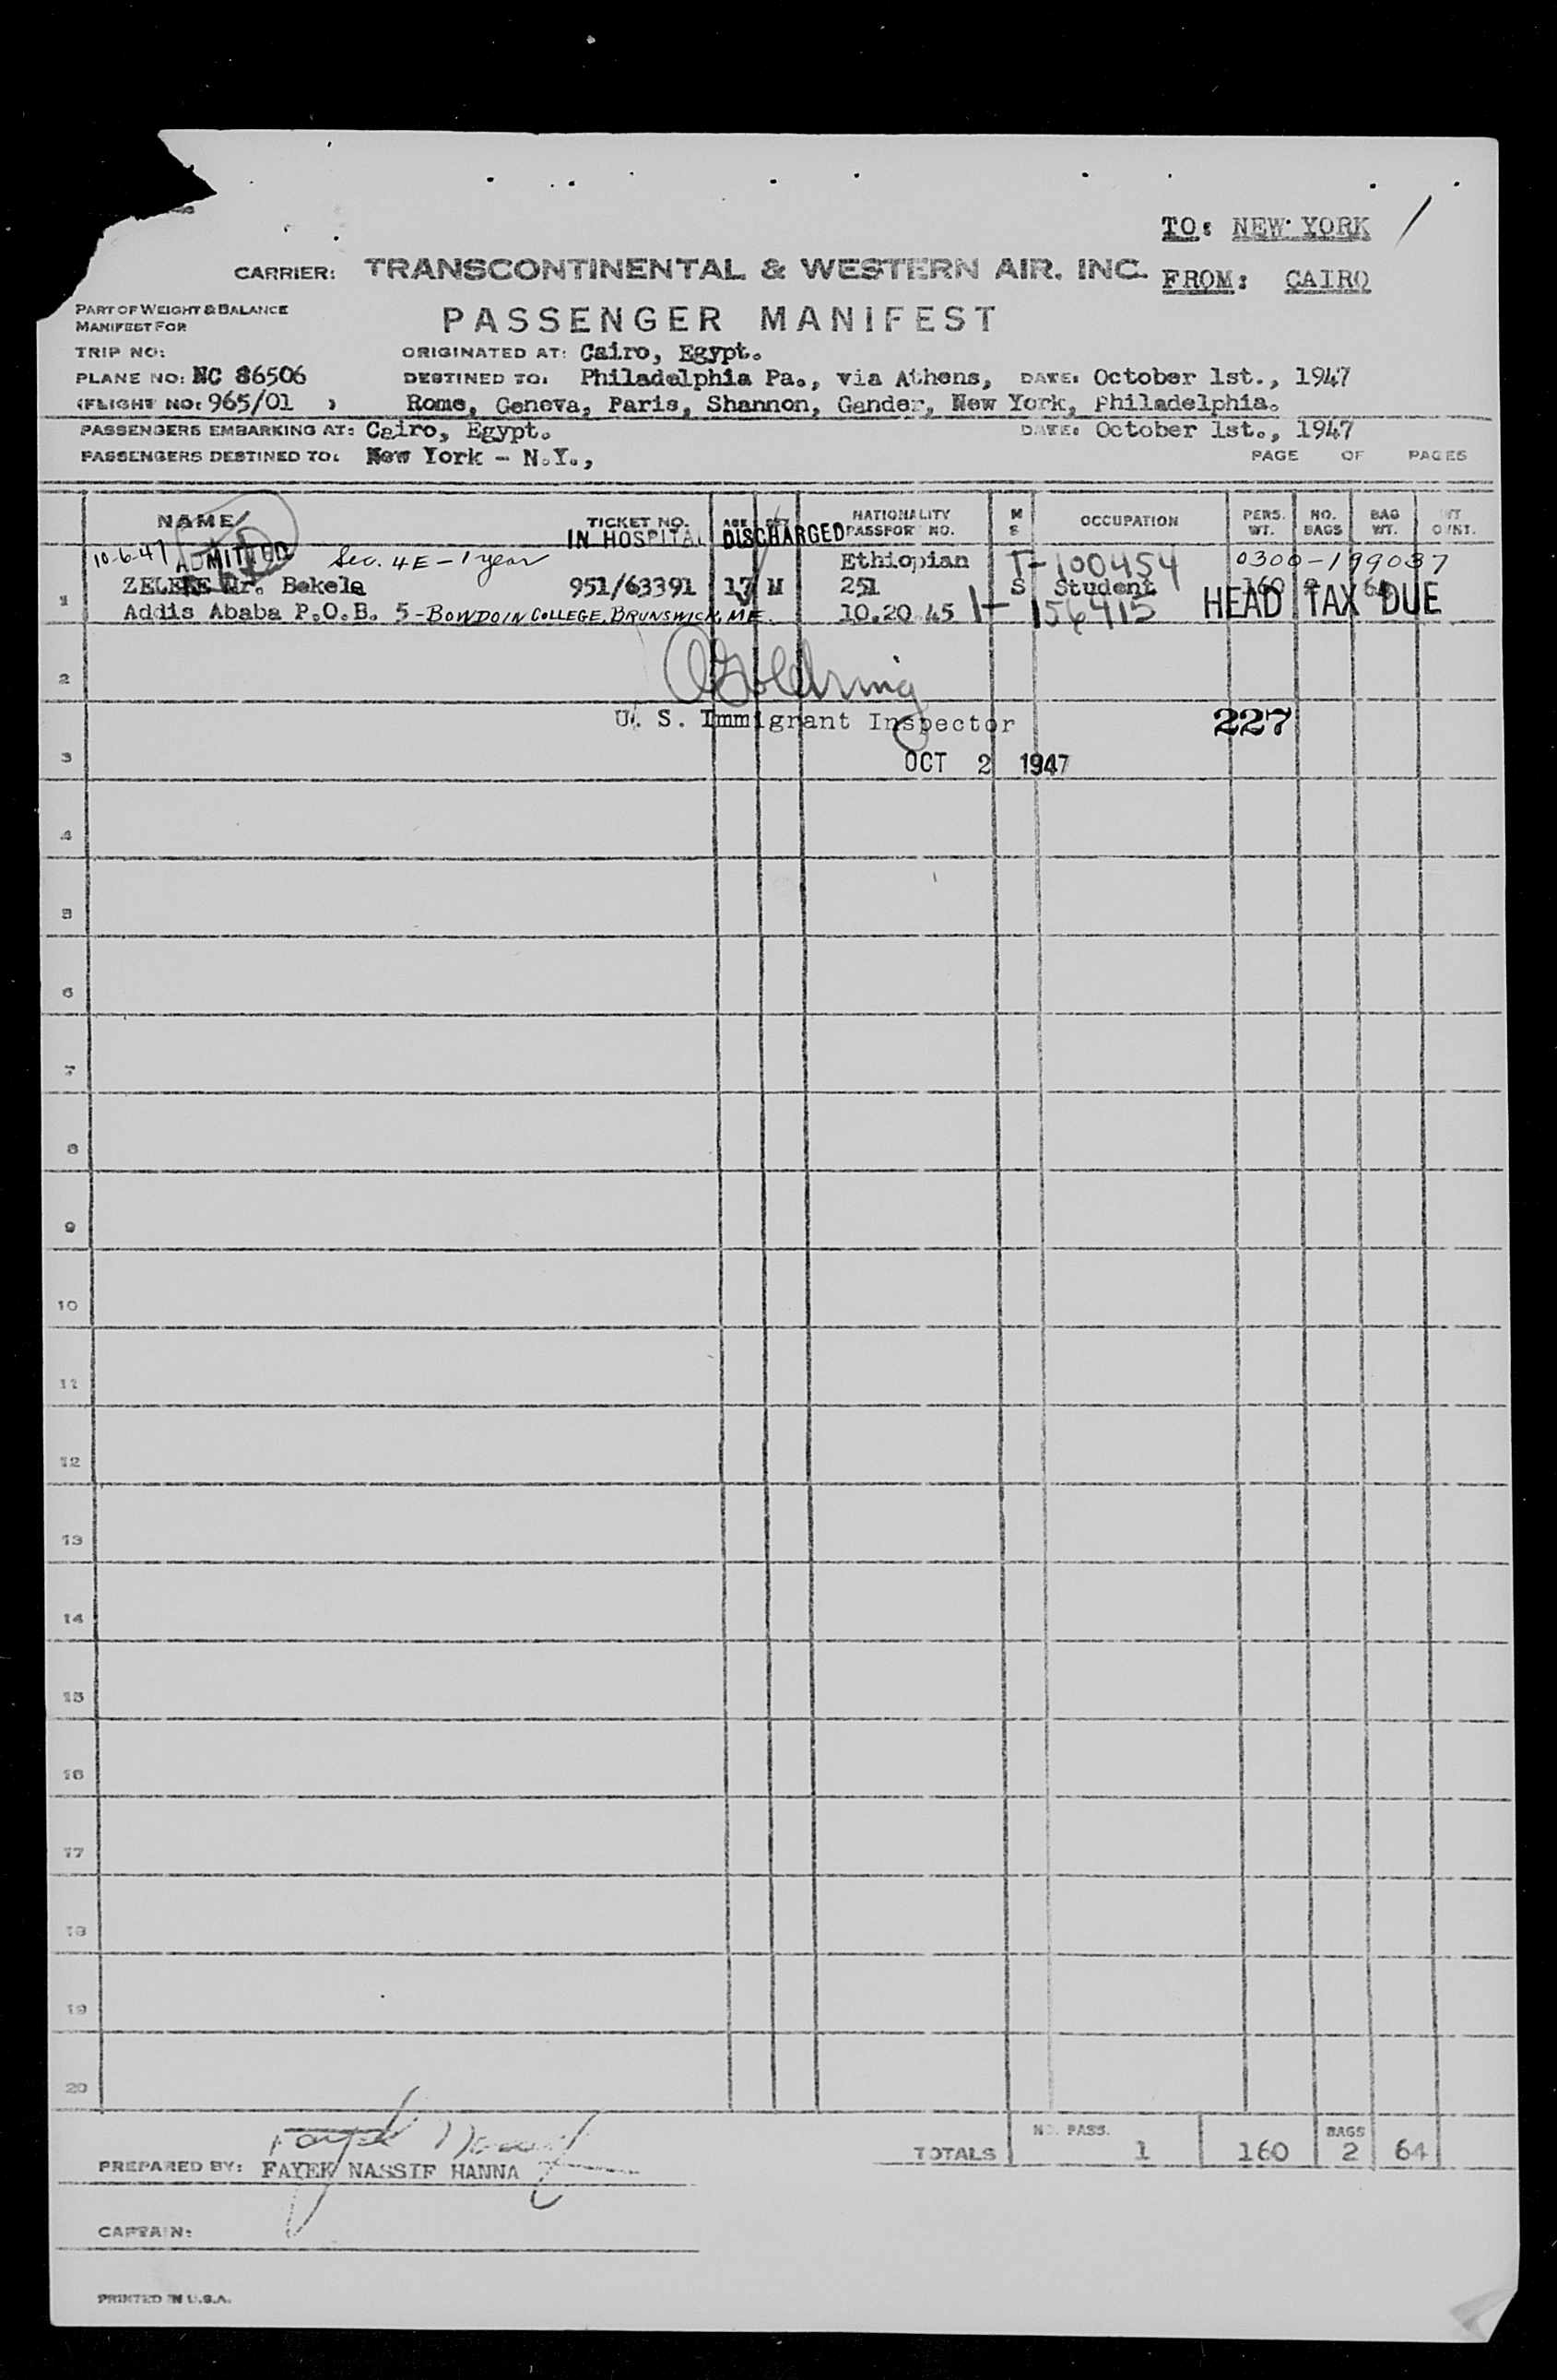 TO: NEW YORK
CARRIER: TRANSCONTINENTAL & WESTERN AIR, INC.
FROM: CAIRO
PART OF WEIGHT & BALANCE
MANIFEST FOR
PASSENGER MANIFEST
TRIP NO:
ORIGINATED AT: Cairo, Egypt.
PLANE NO: NC 86506
DESTINED TO: Philadelphia Pa., via Athens, DATE: October 1st., 1947
(FLIGHT NO: 965/01 )
Rome, Geneva, Paris, Shannon, Gander, New York, Philadelphia.
PASSENGERS EMBARKING AT: Cairo, Egypt.
DATE: October 1st., 1947
PASSENGERS DESTINED TO: New York - N.Y.,
PAGE OF PAGES
NAME TICKET NO. AGE SEX NATIONALITY PASSPORT NO. M S OCCUPATION PERS. WT. NO. BAGS BAG WT.
IN HOSPITAL DISCHARGED
10-6-47 ADMITTED Sec. 4E - 1 year Ethiopian T-100454 0300-199037
1 ZELEKE Mr. Bekele 951/63391 17 M 251 S Student 160 2 64
Addis Ababa P.O.B. 5 - BOWDOIN COLLEGE, BRUNSWICK, ME. 10.20.45 1-156415 HEAD TAX DUE
2
U. S. Immigrant Inspector 227
3 OCT 2 1947
4
5
6
7
8
9
10
11
12
13
14
15
16
17
18
19
20
TOTALS NO. PASS. 1 160 BAGS 2 64
PREPARED BY: FAYEK NASSIF HANNA
CAPTAIN:
PRINTED IN U.S.A.